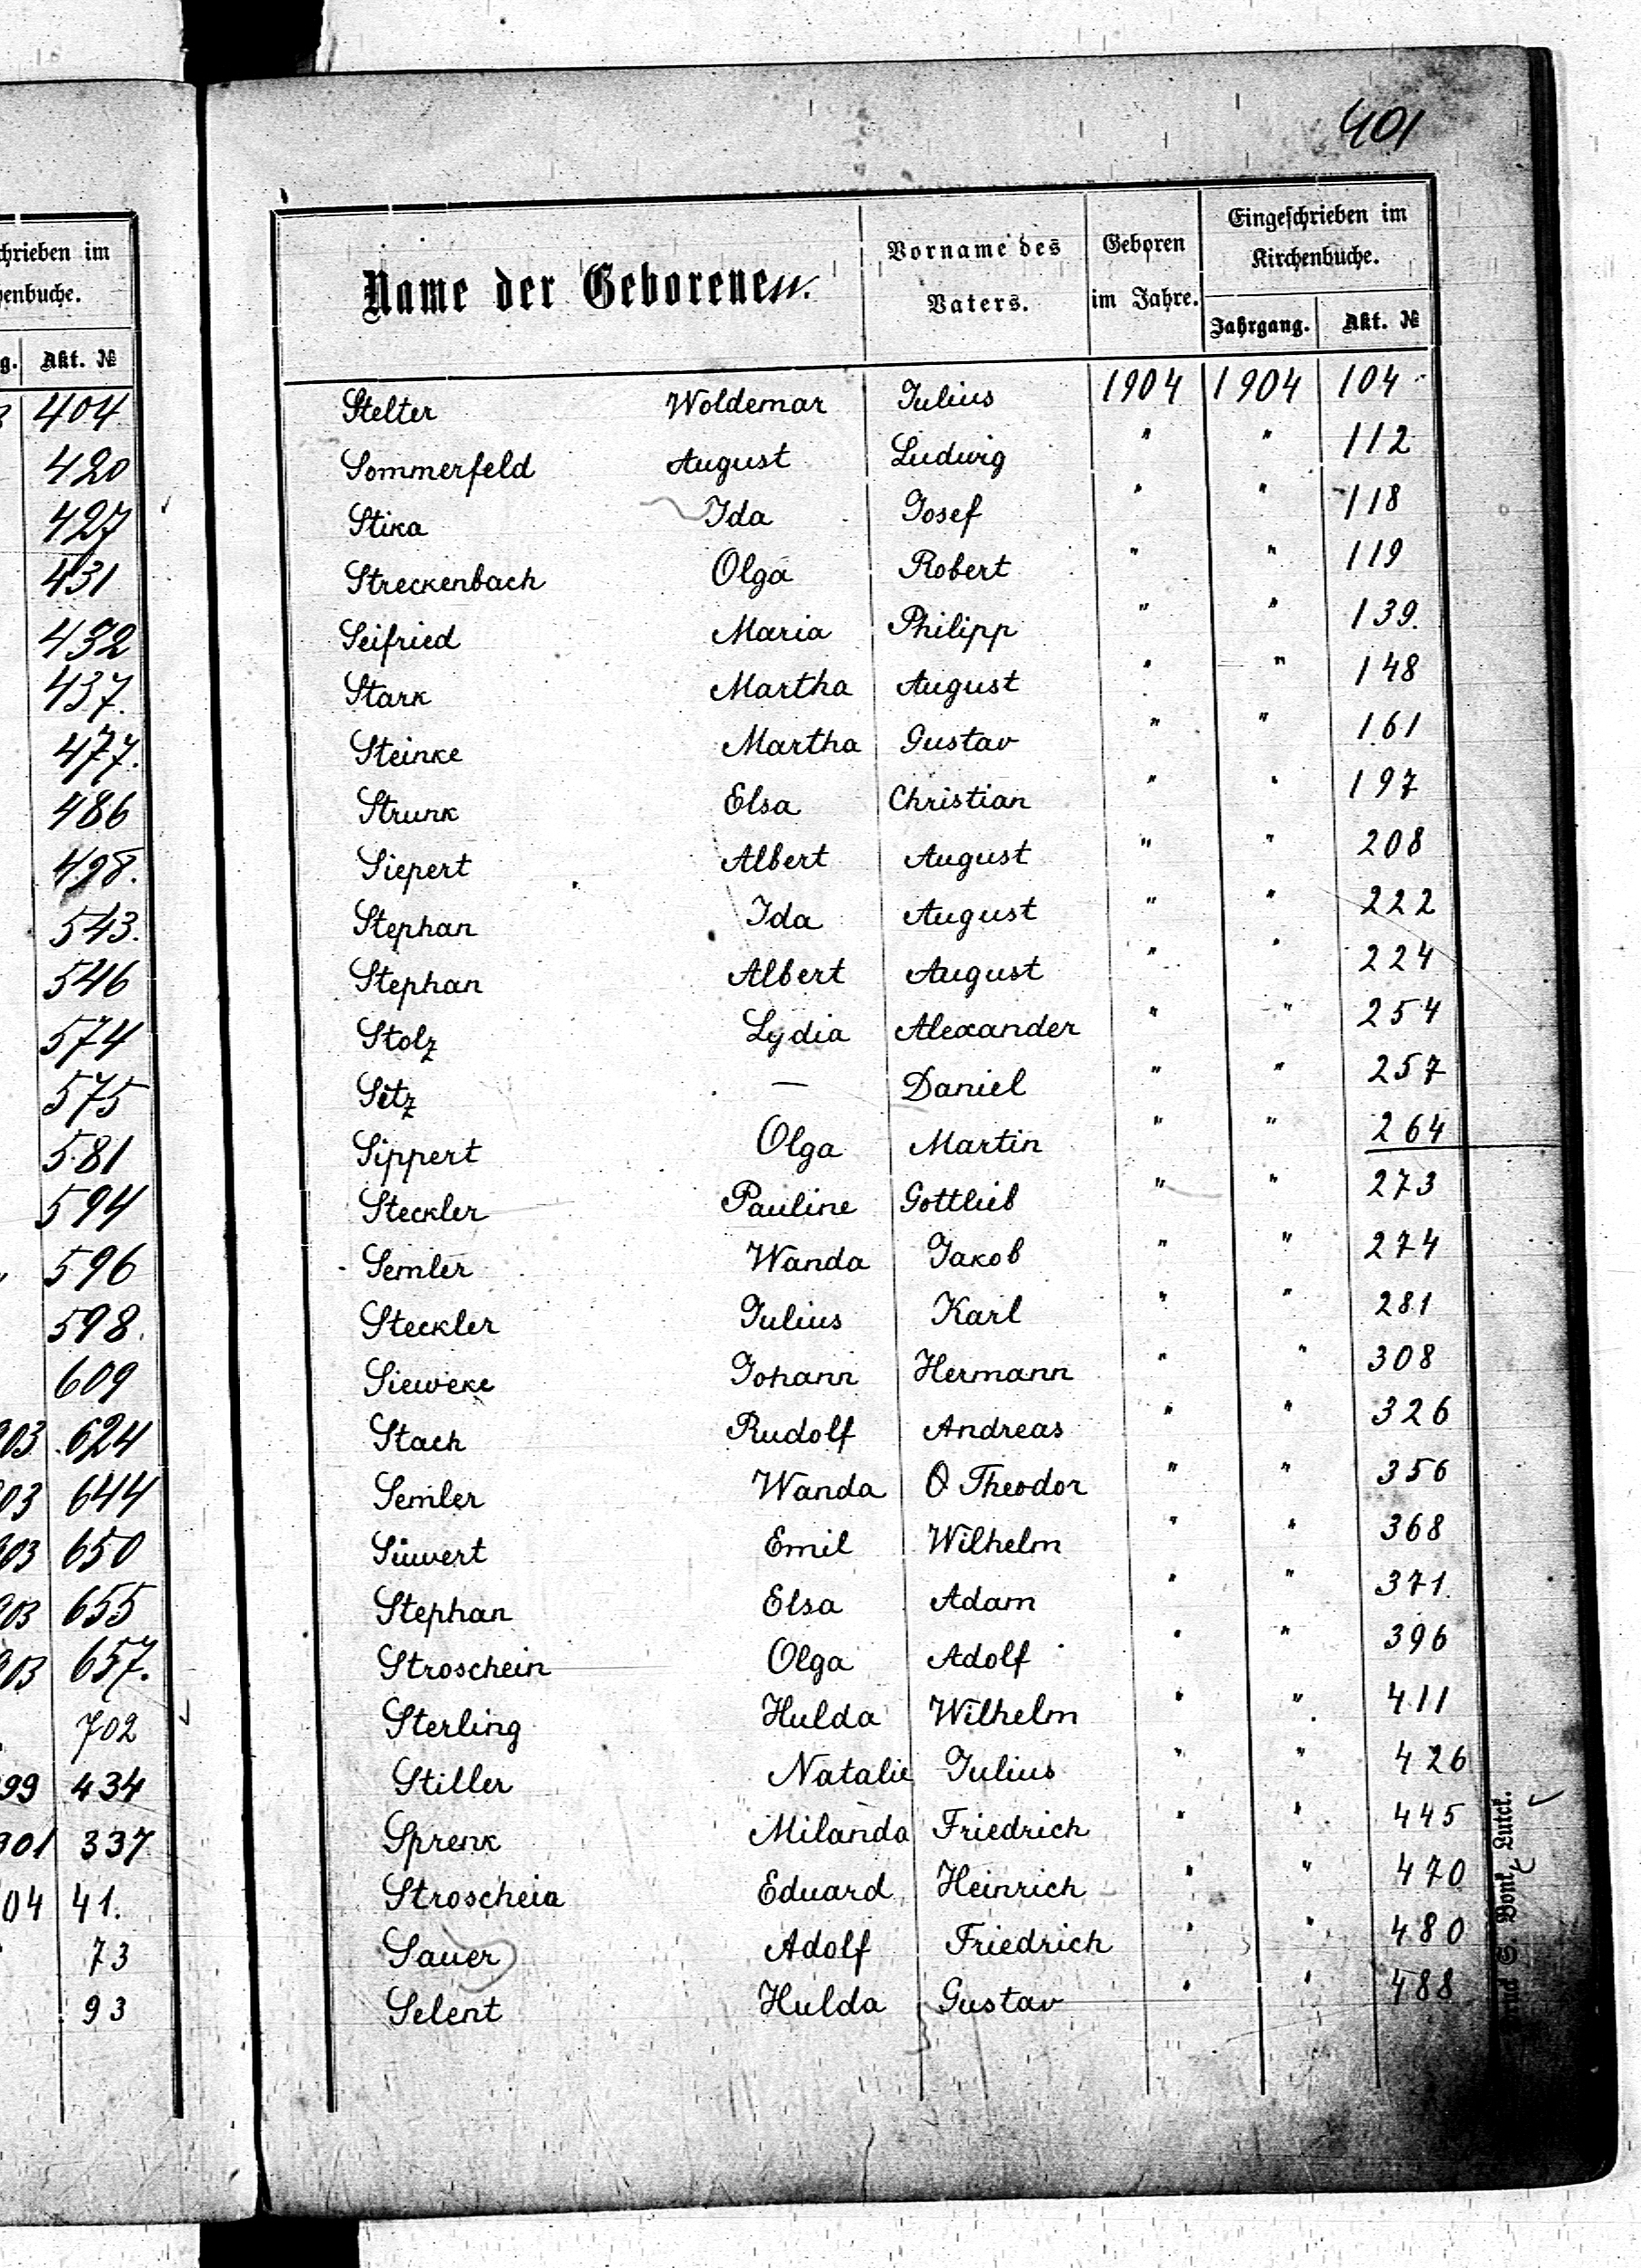 401
chrieben im
henbuche.
g. Akt. №
404
420
427
431
432
437.
477.
486
498.
543.
546
574
575
581
594
596
598.
609
903 624
903 644
903 650
903 655
903 657.
702
99 434
901 337
04 41.
73
93
Name der Geborenen. Vorname des Vaters. Geboren im Jahre. Eingeschrieben im Kirchenbuche.
Jahrgang. Akt. №
Stelter Woldemar Julius 1904 1904 104
Sommerfeld August Ludwig " " 112
Stika Ida Josef " " 118
Streckenbach Olga Robert " " 119
Seifried Maria Philipp " " 139.
Stark Martha August " " 148
Steinke Martha Gustav " " 161
Strunk Elsa Christian " " 197
Siepert Albert August " " 208
Stephan Ida August " " 222
Stephan Albert August " " 224
Stolz Lydia Alexander " " 254
Setz — Daniel " " 257
Sippert Olga Martin " " 264
Steckler Pauline Gottlieb " " 273
Semler Wanda Jakob " " 274
Steckler Julius Karl " " 281
Sieweke Johann Hermann " " 308
Stach Rudolf Andreas " " 326
Semler Wanda O Theodor " " 356
Süwert Emil Wilhelm " " 368
Stephan Elsa Adam " " 371.
Stroschein Olga Adolf " " 396
Sterling Hulda Wilhelm " " 411
Stiller Natalie Julius " " 426
Sprenk Milanda Friedrich " " 445
Stroschein Eduard Heinrich " " 470
Sauer Adolf Friedrich " " 480
Selent Hulda Gustav " " 488
S. Bonk, Lutck.